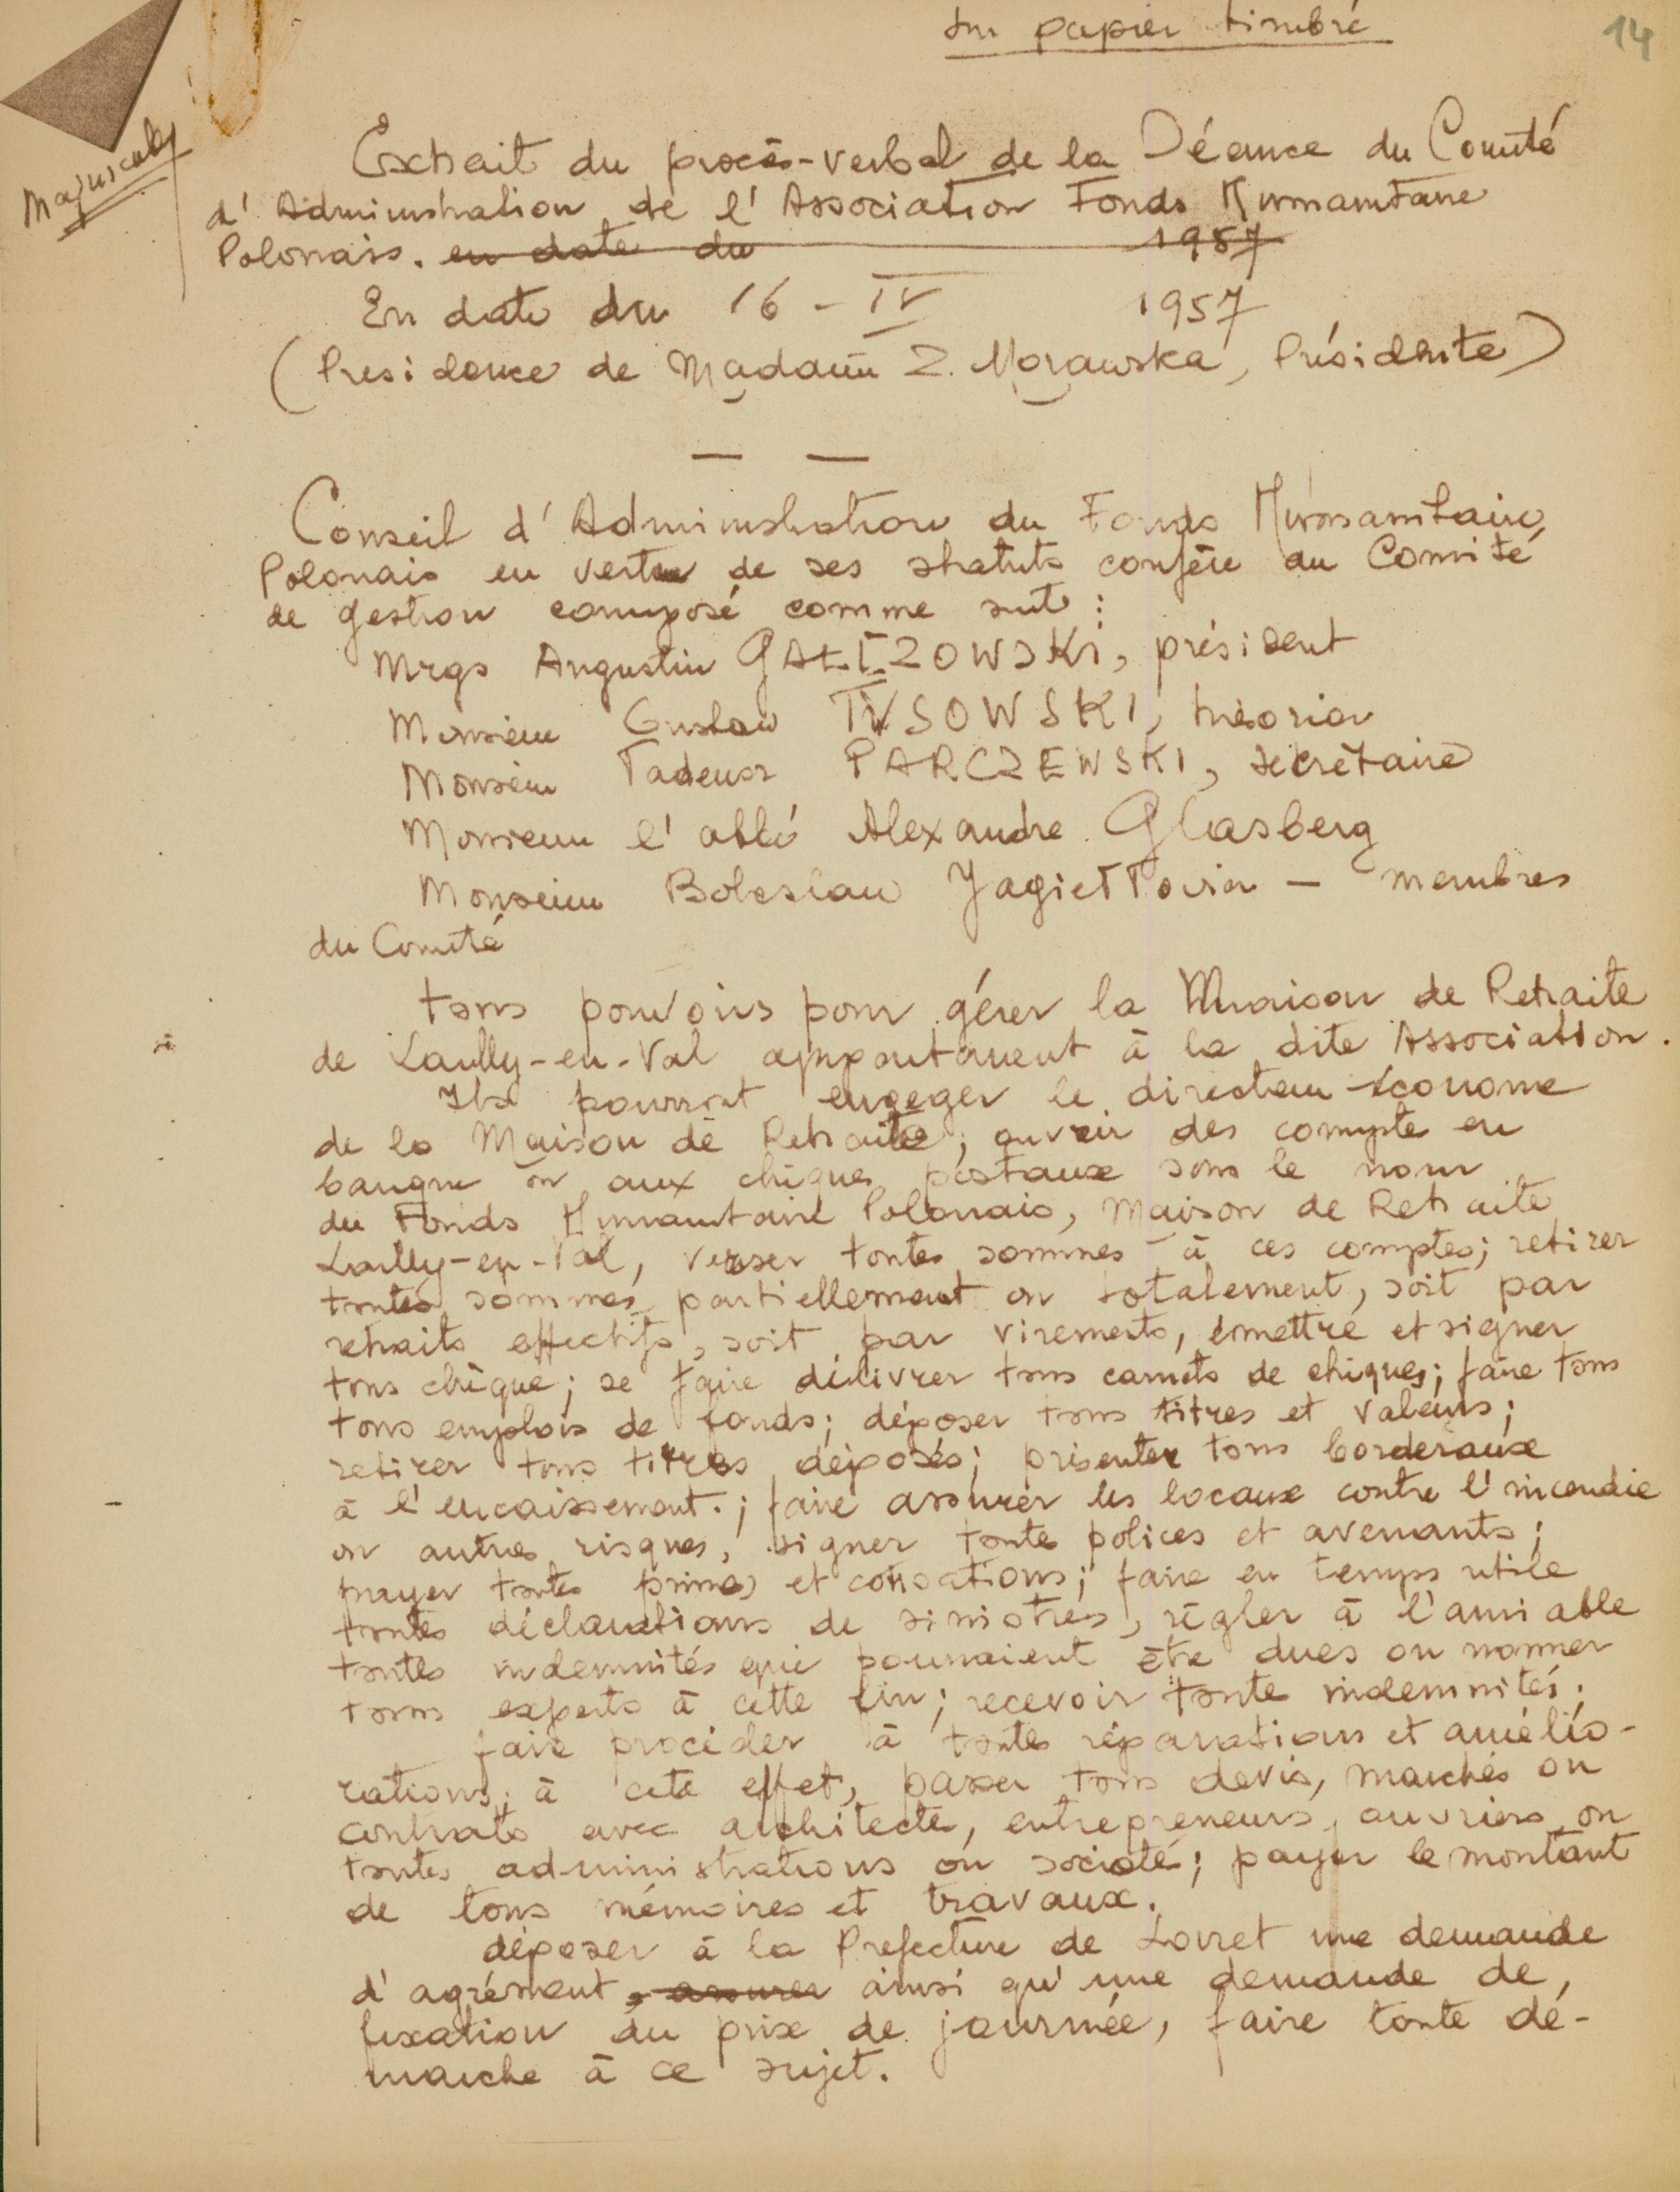 sur papier timbré
14
Majuscules
Extrait du procès-verbal de la Séance du Comité
d'Administration de l'Association Fonds Humanitaire
Polonais. en date du 1957
En date du 16 - IV 1957
(Présidence de Madame Z. Morawska, Présidente)
Conseil d'Administration du Fonds Humanitaire
Polonais en vertu de ses statuts confère au Comité
de gestion composé comme suit :
Mrgs Augustin GAŁĘZOWSKI, président
Monsieur Gustaw TYSOWSKI, trésorier
Monsieur Tadeusz PARCZEWSKI, secrétaire
Monsieur l'abbé Alexandre Glasberg
Monsieur Boleslaw – membres
du Comité
tous pouvoirs pour gérer la Maison de Retraite
de Lailly-en-Val appartenant à la dite Association.
Ils pourront engager le directeur-économe
de la Maison de Retraite; ouvrir des compte en
banque ou aux chèques postaux sous le nom
du Fonds Humanitaire Polonais, Maison de Retraite
Lailly-en-Val, verser toutes sommes à ces comptes; retirer
toutes sommes partiellement ou totalement, soit par
retraits effectifs, soit par virements, émettre et signer
tous chèque; se faire délivrer tous carnets de chèques; faire tous
tous emplois de fonds; déposer tous titres et valeurs;
retirer tous titres déposés; présenter tous borderaux
à l'encaissement.; faire assurer les locaux contre l'incendie
ou autres risques, signer toute polices et avenants;
payer toutes primes et cotisations; faire en temps utile
toutes déclarations de sinistres, régler à l'amiable
toutes indemnités qui pourraient être dues ou nommer
tous experts à cette fin; recevoir toute indemnités;
faire procéder à toutes réparations et amélio-
rations; à cete effet, passer tous devis, marchés ou
contrats avec architecte, entrepreneurs, ouvriers ou
toutes administrations ou societé; payer le montant
de tous mémoires et travaux.
déposer à la Prefecture de Loiret une demande
d'agrément, assurer ainsi qu'une demande de,
fixation du prix de journée, faire toute dé-
marche à ce sujet.